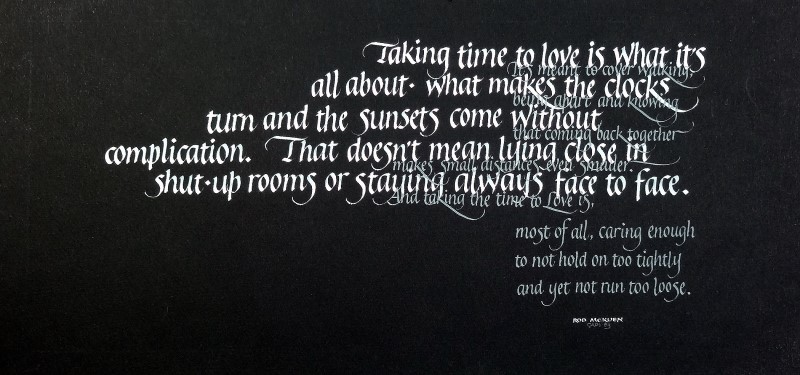 Taking time to love is what it's
all about. what makes the clocks
turn and the sunsets come without
complication. That doesn't mean lying close in
shut-up rooms or staying always face to face.
It's meant to cover walking,
being apart and knowing
that coming back together
makes small distances even smaller.
And taking the time to Love is,
most of all, caring enough
to not hold on too tightly
and yet not run too loose.
ROD McKUEN